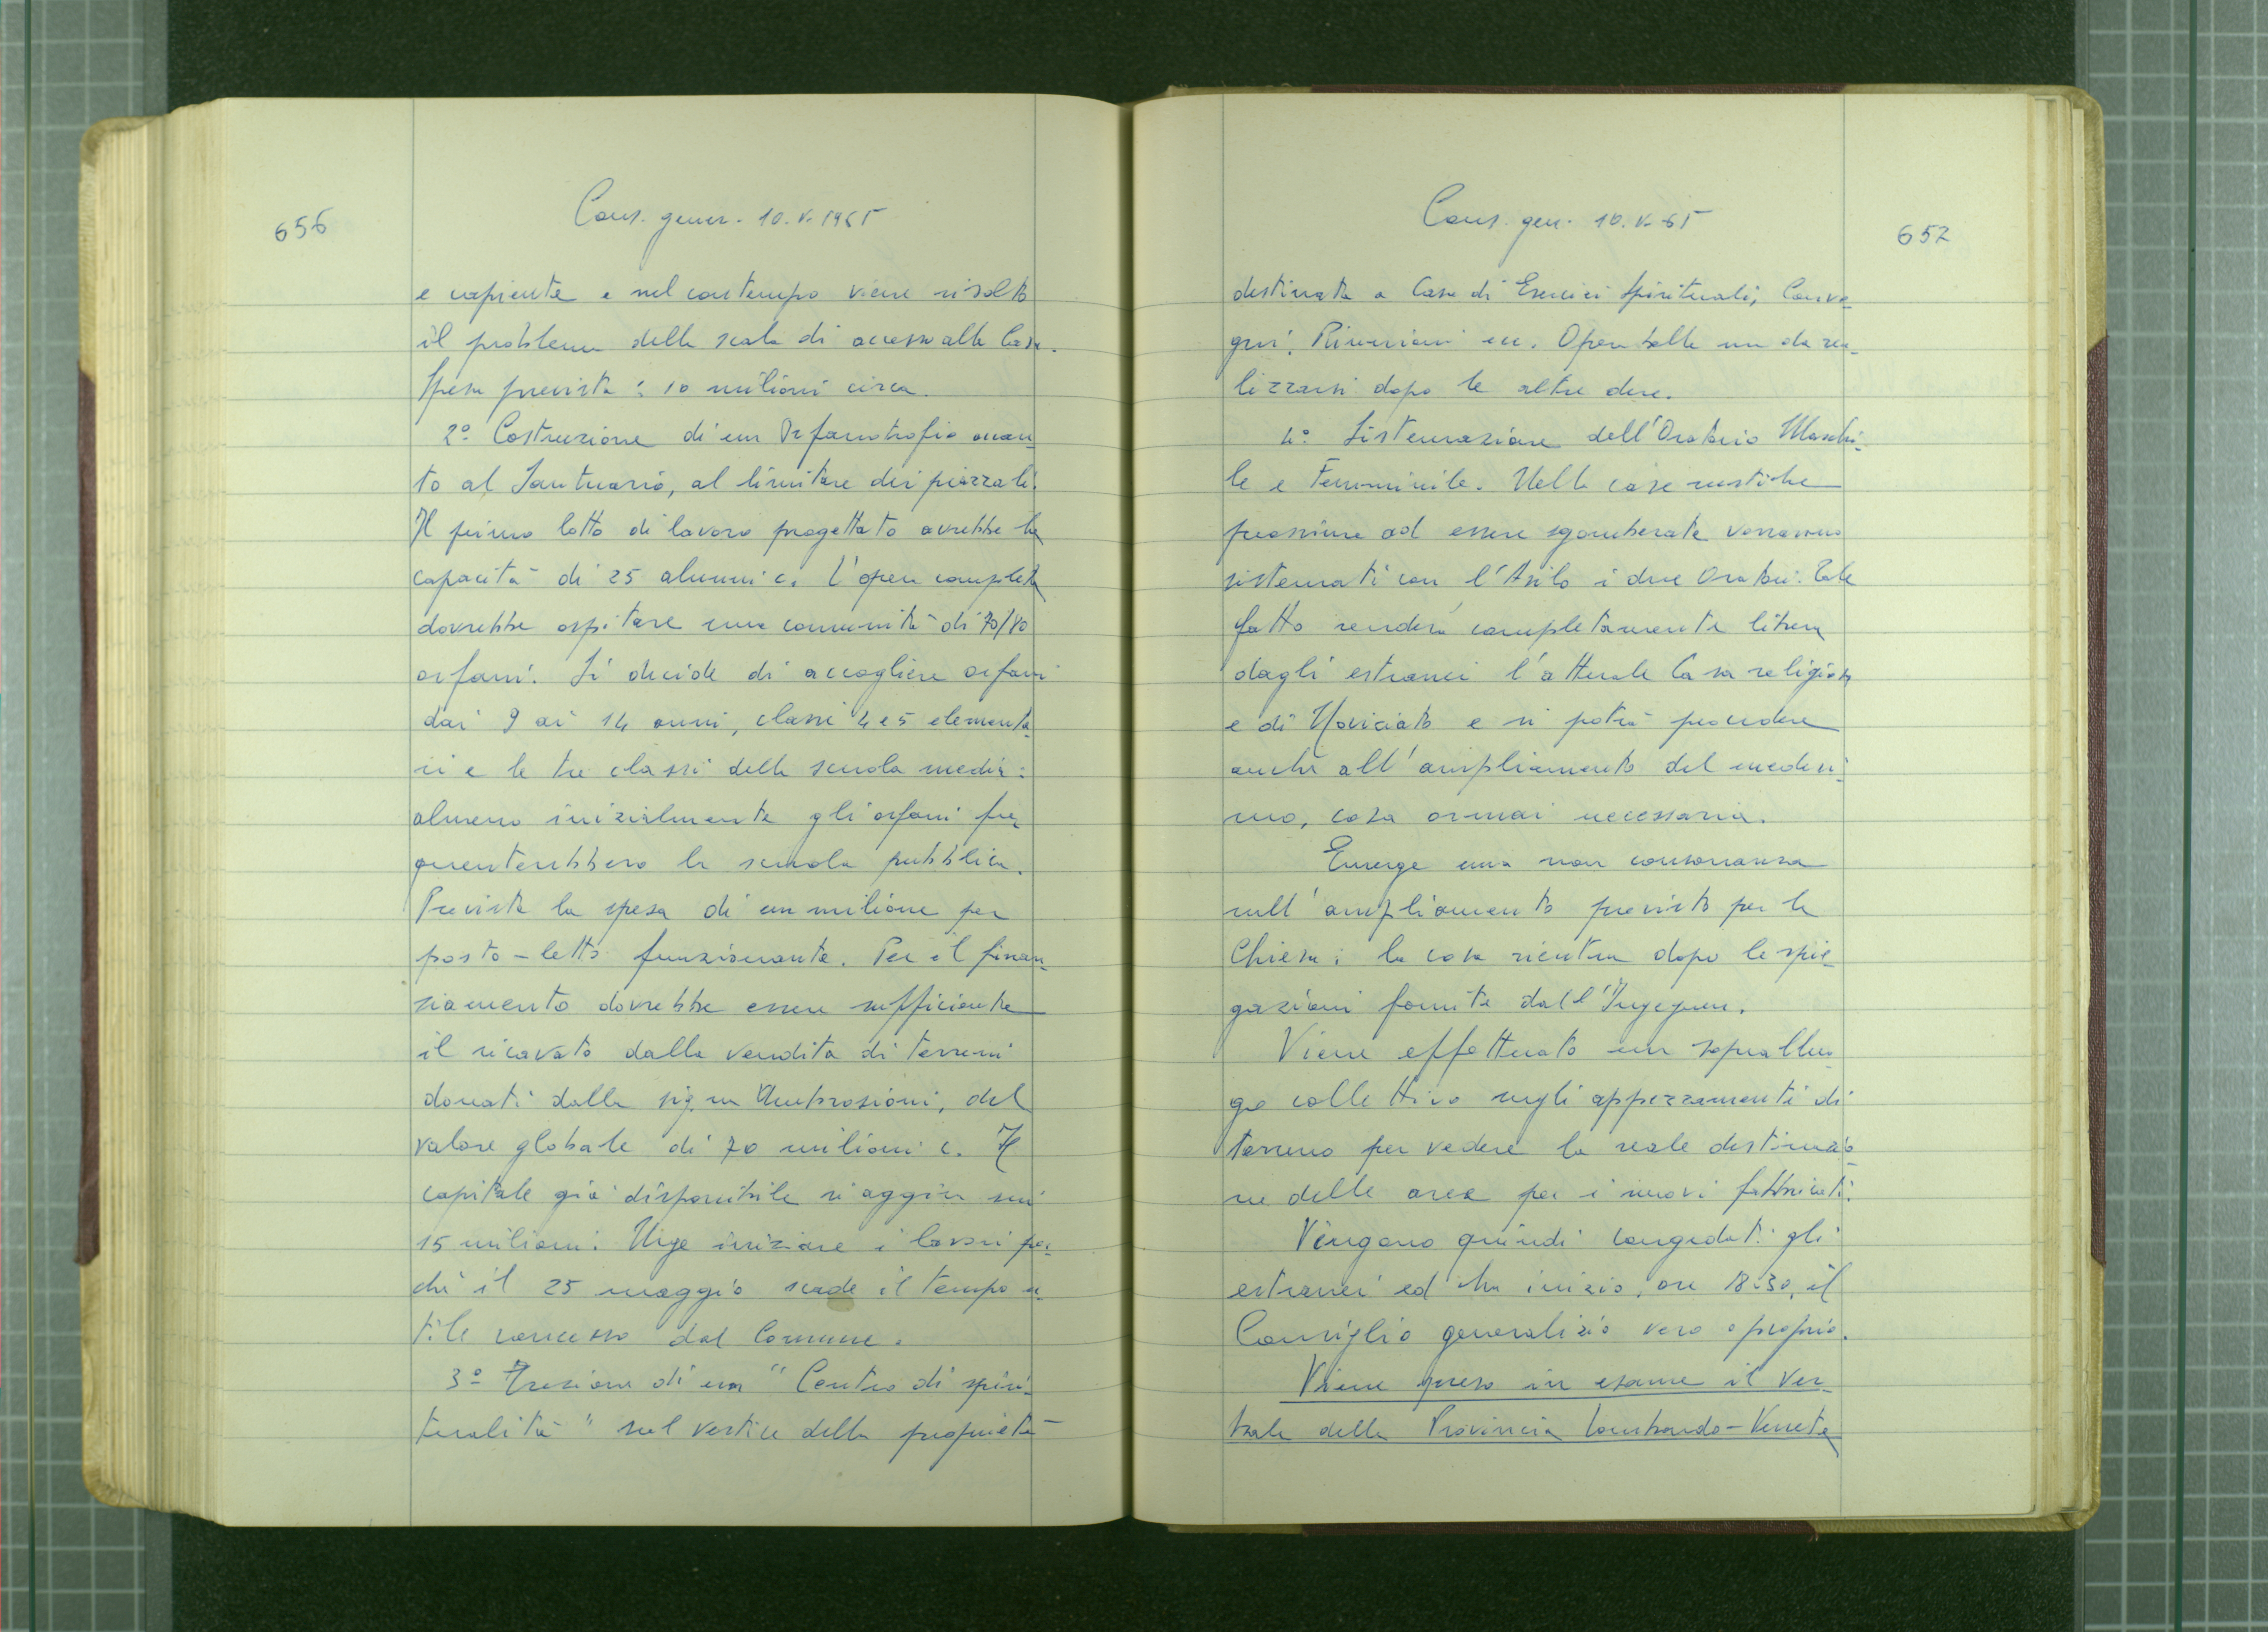 656
Cons. gener. 10.V.1965
e capiente e nel contempo viene risolto
il problema della scala di accesso alla Casa.
Spesa prevista: 10 milioni circa.
2º Costruzione di un Orfanotrofio accan-
to al Santuario, al limitare dei piazzali.
Il primo lotto di lavoro progettato avrebbe la
capacità di 25 alunni c. L'opera completa
dovrebbe ospitare una comunità di 70/80
orfani. Si decide di accogliere orfani
dai 9 ai 14 anni, classi 4 e 5 elementa-
ri e le tre classi della scuola media:
almeno inizialmente gli orfani fre-
quenterebbero la scuola pubblica.
Prevista la spesa di un milione per
posto-letto funzionante. Per il finan-
ziamento dovrebbe essere sufficiente
il ricavato dalla vendita di terreni
donati dalla sig.na Ambrosioni, del
valore globale di 70 milioni c. Il
capitale già disponibile si aggira sui
15 milioni. Urge iniziare i lavori per-
chè il 25 maggio scade il tempo u-
tile concesso dal Comune.
3º Erezione di un "Centro di spiri-
tualità" sul vertice della proprietà
Cons. gen. 10.V.65
652
destinata a Casa di Esercizi Spirituali, Conve-
gni, Riunioni ecc. Opera bella ma da rea-
lizzarsi dopo le altre due.
4º Sistemazione dell'Oratorio Maschi-
le e Femminile. Nelle case rustiche
prossime ad essere sgomberate verranno
sistemati con l'Asilo i due Oratori. Tale
fatto renderà completamente libera
dagli estranei l'attuale Casa religiosa
e di Noviziato e si potrà procedere
anche all'ampliamento del medesi-
mo, cosa ormai necessaria.
Emerge una non consonanza
sull'ampliamento previsto per la
Chiesa: la cosa rientra dopo le spie-
gazioni fornite dall'Ingegnere.
Viene effettuato un sopralluo-
go collettivo sugli appezzamenti di
terreno per vedere la reale destinazio-
ne delle aree per i nuovi fabbricati.
Vengono quindi congedati gli
estranei ed ha inizio, ore 18.30, il
Consiglio generalizio vero e proprio.
Viene preso in esame il Ver-
bale della Provincia Lombardo-Veneta